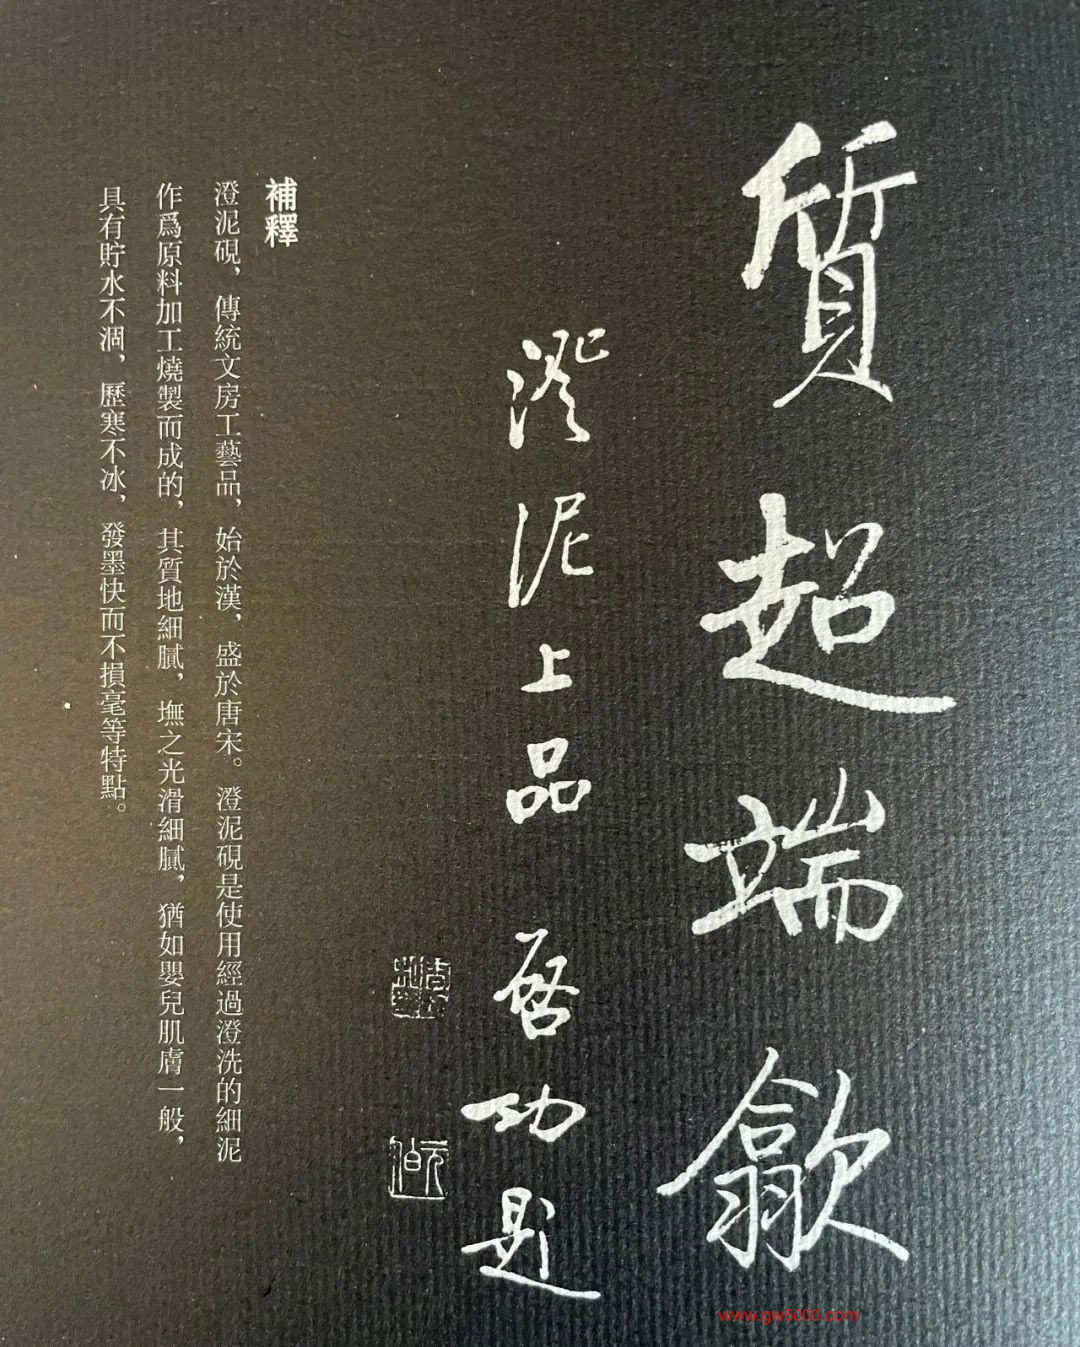 質超端歙
澄泥上品 啓功題
元白
補釋
澄泥硯，傳統文房工藝品，始於漢，盛於唐宋。澄泥硯是使用經過澄洗的細泥
作爲原料加工燒製而成的，其質地細膩，撫之光滑細膩，猶如嬰兒肌膚一般，
具有貯水不涸，歷寒不冰，發墨快而不損毫等特點。
www.gw5000.com